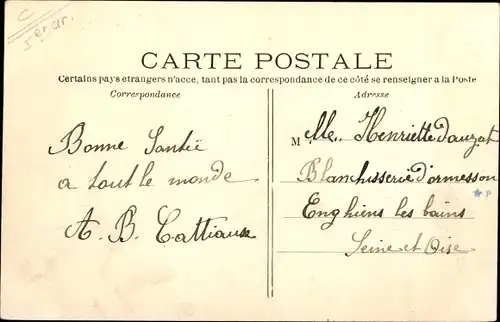 5er ar.
CARTE POSTALE
Certains pays etrangers n'acce, tant pas la correspondance de ce côté se renseigner a la Poste
Correspondance
Adresse
Bonne Santéé
a tout le monde
A. B. Cattiaux
M elle. Henriette Dauzat
Blanchisserie d'ormesson
Enghiens les bains
Seine et Oise